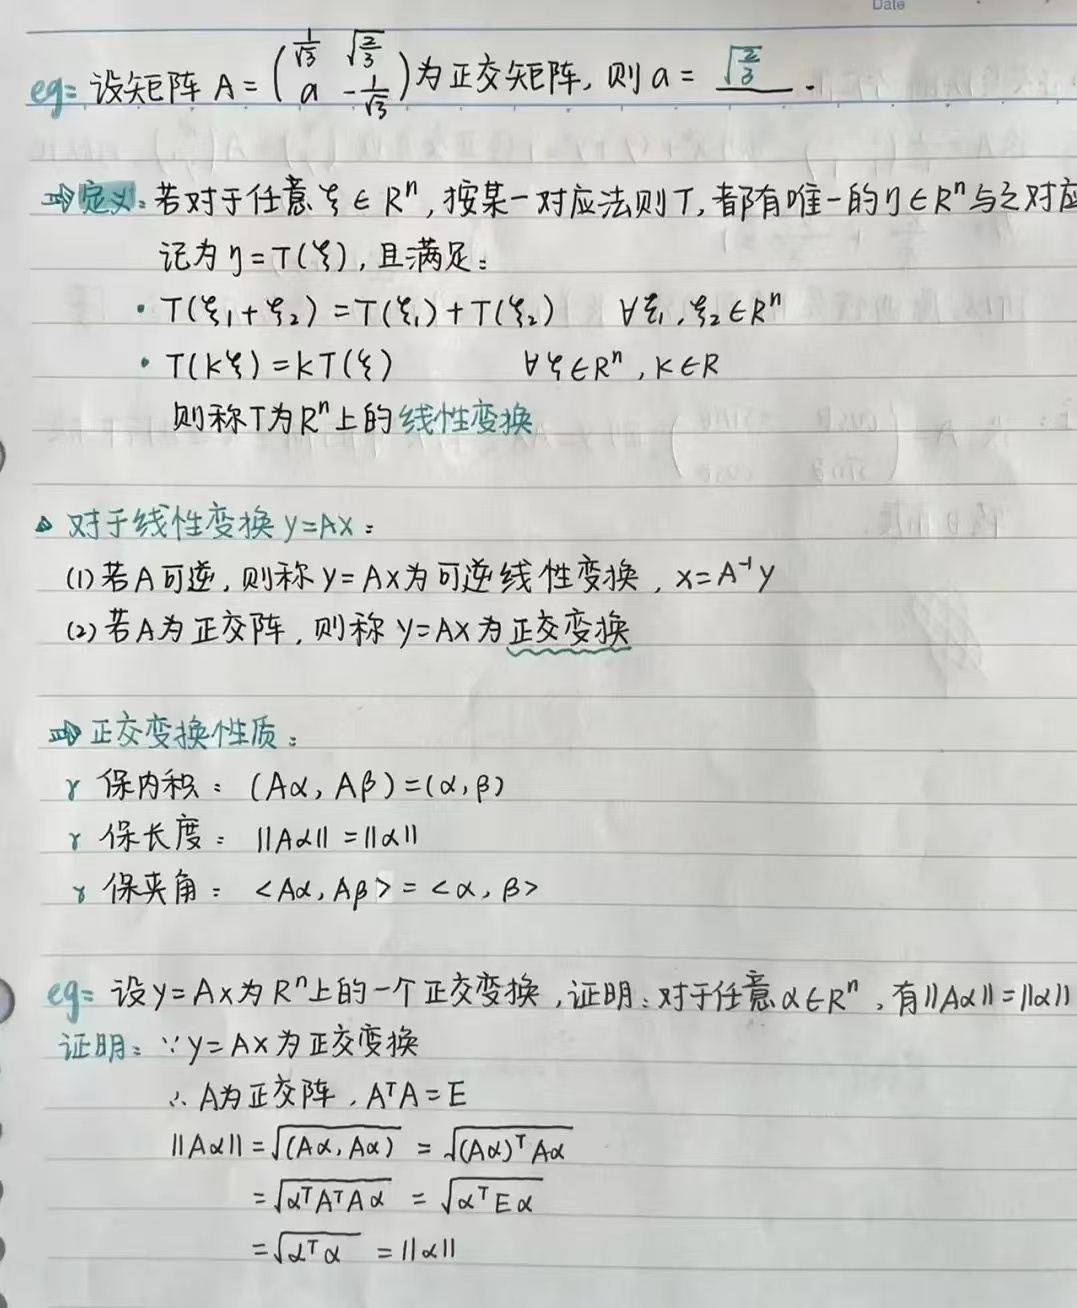 Date
eg: 设矩阵 A = (1/√3 √(2/3) a -1/√3) 为正交矩阵, 则 a = √(2/3) .
⇒ 定义: 若对于任意 ξ ∈ Rⁿ, 按某一对应法则 T, 都有唯一的 η ∈ Rⁿ 与之对应
记为 η = T(ξ), 且满足:
• T(ξ₁ + ξ₂) = T(ξ₁) + T(ξ₂) ∀ξ₁, ξ₂ ∈ Rⁿ
• T(kξ) = kT(ξ) ∀ξ ∈ Rⁿ, k ∈ R
则称 T 为 Rⁿ 上的线性变换
对于线性变换 y=AX:
(1) 若 A 可逆, 则称 y = AX 为可逆线性变换, x = A⁻¹y
(2) 若 A 为正交阵, 则称 y=AX 为正交变换
⇒ 正交变换性质:
保内积: (Aα, Aβ) = (α, β)
保长度: ||Aα|| = ||α||
保夹角: <Aα, Aβ> = <α, β>
eg: 设 y = Ax 为 Rⁿ 上的一个正交变换, 证明: 对于任意 α ∈ Rⁿ, 有 ||Aα|| = ||α||
证明: ∵ y = AX 为正交变换
∴ A 为正交阵, AᵀA = E
||Aα|| = √(Aα, Aα) = √((Aα)ᵀAα)
= √(αᵀAᵀAα) = √(αᵀEα)
= √(αᵀα) = ||α||